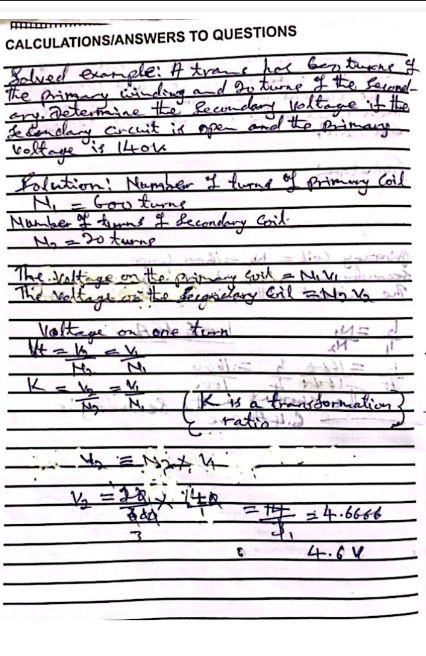 CALCULATIONS/ANSWERS TO QUESTIONS
Solved example: A trans has 600 turns of
the primary winding and 20 turns of the Second-
ary. Determine the Secondary voltage if the
Secondary circuit is open and the primary
voltage is 140V.
Solution: Number of turns of primary Coil
N₁ = 600 turns
Number of turns of Secondary Coil.
N₂ = 20 turns
The Voltage on the primary Coil = N₁V₁
The Voltage on the Secondary Coil = N₂V₂
Voltage on one turn
Vt = V₂/N₂ = V₁/N₁
K = V₂/N₂ = V₁/N₁
{ K is a transformation
ratio }
V₂ = N₂ × V₁
V₂ = 20/600 × 140/1 = 14/3 = 4.6666
3
4.6V